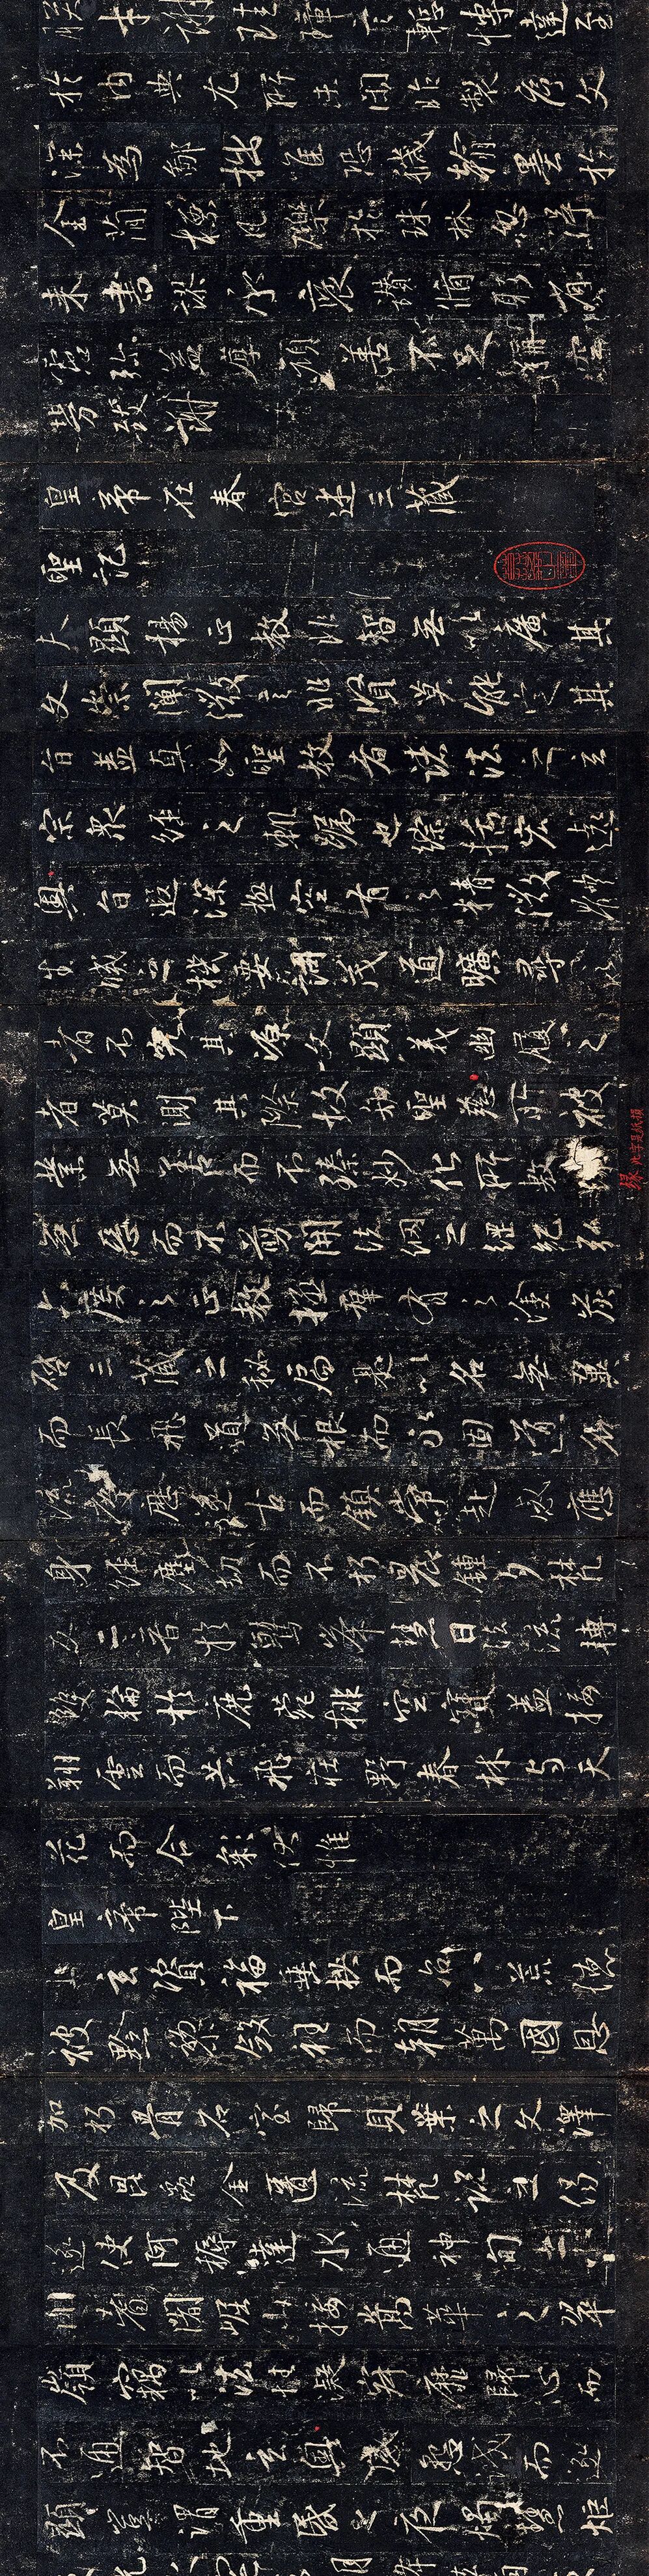 朕才謝珪璋言慚博達至
於內典尤所未閑昨製序文
深為鄙拙唯恐穢翰墨於
金簡標瓦礫於珠林忽得
來書謬承褒讚循躬省
慮彌益厚顏善不足稱空
勞致謝
皇帝在春宮述三藏
聖記
夫顯揚正教非智無以廣其
文崇闡微言非賢莫能定其
旨蓋真如聖教者諸法之玄
宗眾經之軌躅也綜括宏遠
奧旨遐深極空有之精微體
生滅之機要詞茂道曠尋之
者不究其源文顯義幽履之
者莫測其際故知聖慈所被
業無善而不臻妙化所敷
緣 此字是紙損
無惡而不翦開法網之綱紀弘
六度之正教拯群有之塗炭
啟三藏之秘扃是以名無翼
而長飛道無根而永固道名
流慶歷遂古而鎮常赴感應
身經塵劫而不朽晨鐘夕梵
交二音於鷲峰慧日法流轉
雙輪於鹿苑排空寶蓋接
翔雲而共飛莊野春林與天
花而合彩伏惟
皇帝陛下
上玄資福垂拱而治八荒德
被黔黎斂衽而朝萬國恩
加朽骨石室歸貝葉之文澤
及昆蟲金匱流梵說之偈
遂使阿耨達水通神甸之八
川耆闍崛山接嵩華之翠
嶺竊以法性凝寂靡歸心而
不通智地玄奧感懇誠而遂
顯豈謂重昏之夜燭慧炬